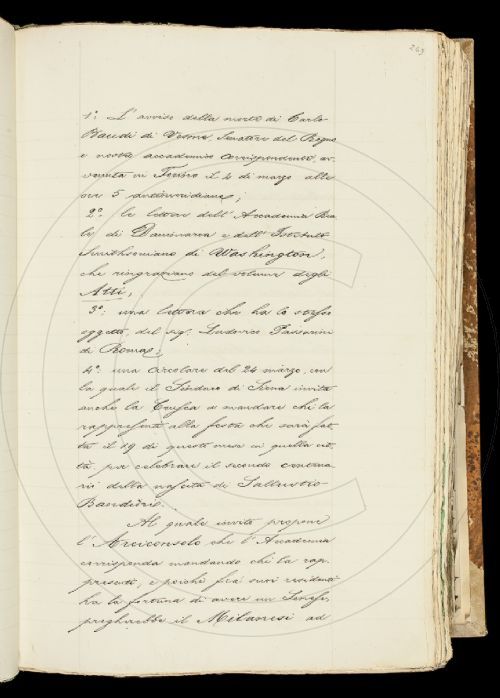 263
1.° L'avviso della morte di Carlo
Baudi di Vesme, Senatore del Regno
e nostro accademico corrispondente, av-
venuta in Torino il 4 di marzo alle
ore 5 antimeridiane;
2.° le lettere dell'Accademia Rea-
le di Danimarca e dell'Istituto
Smithsoniano di Washington,
che ringraziano del volume degli
Atti;
3.° una lettera che ha lo stesso
oggetto, del sig. Ludovico Passarini
di Roma;
4.° una circolare del 24 marzo, con
la quale il Sindaco di Siena invita
anche la Crusca a mandare chi la
rappresenti alla festa che sarà fat-
ta il 19 di questo mese in quella cit-
tà, per celebrare il secondo centena-
rio della nascita di Sallustio
Bandini.
Al quale invito propone
l'Arciconsolo che l'Accademia
corrisponda mandando chi la rap-
presenti, e poichè fra suoi residenti
ha la fortuna di avere un Senese,
pregherebbe il Milanesi ad